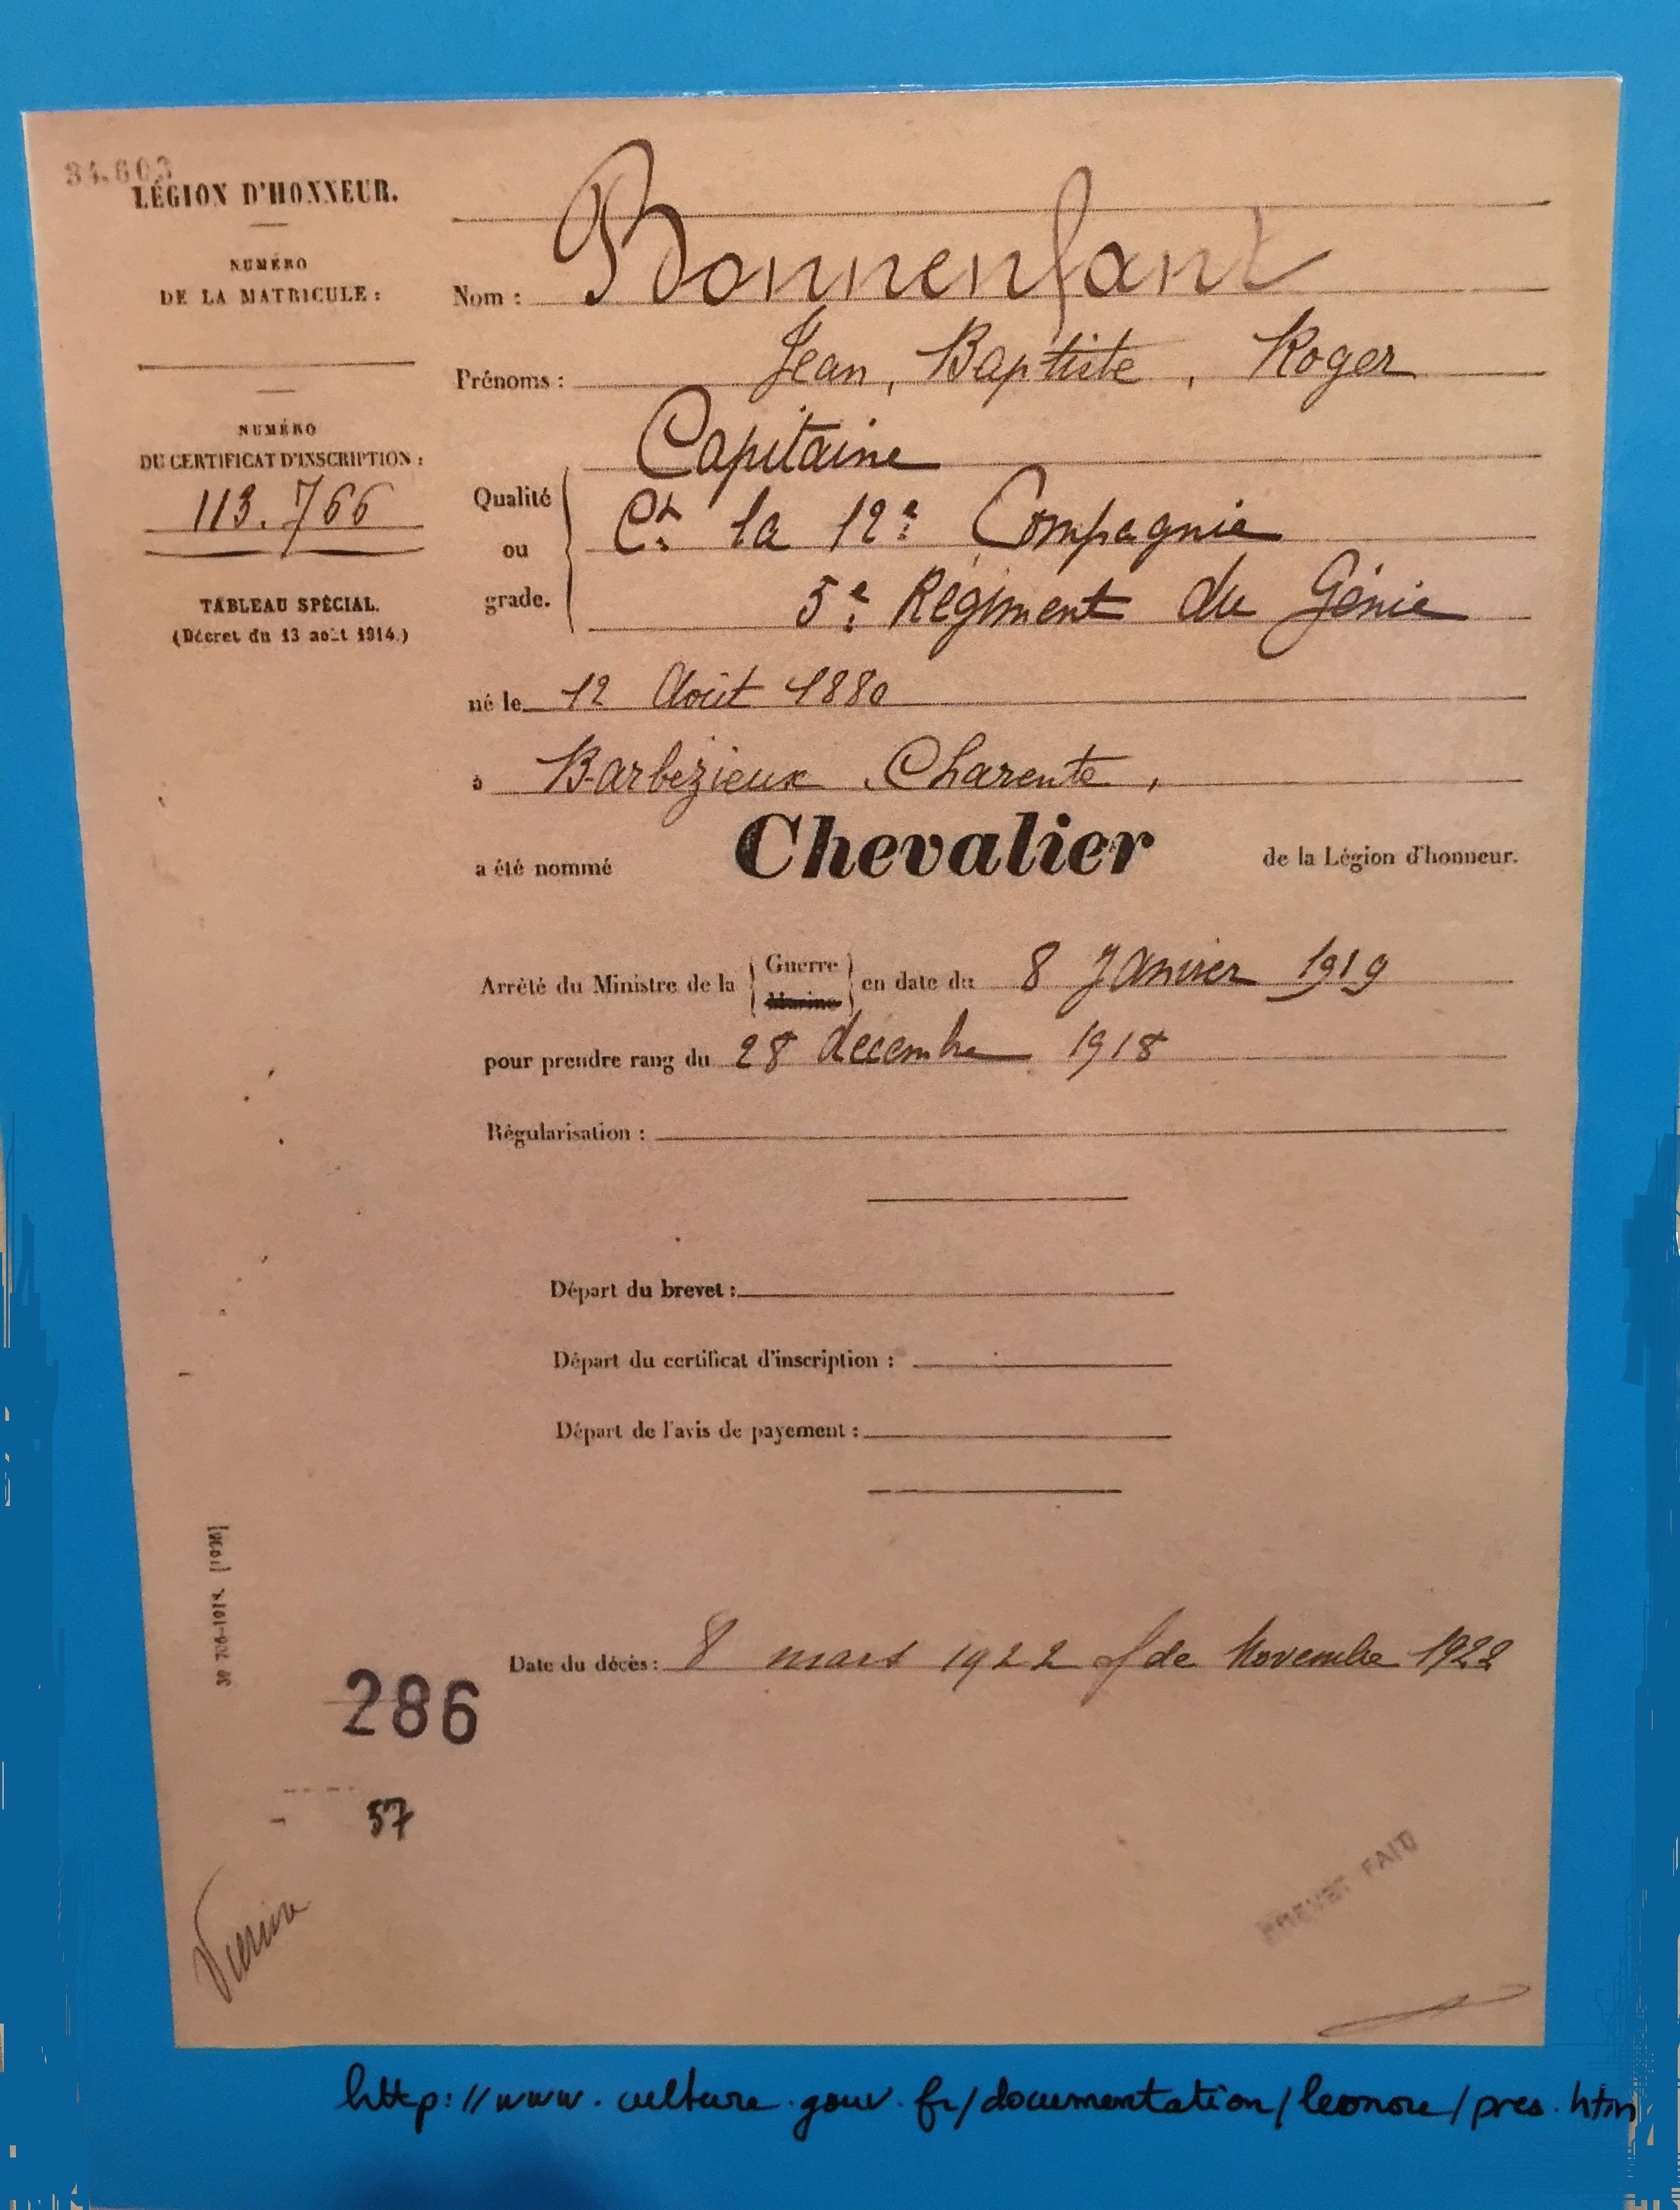 34.603
LÉGION D'HONNEUR.
NUMÉRO
DE LA MATRICULE :
NUMÉRO
DU CERTIFICAT D'INSCRIPTION :
113.766
TABLEAU SPÉCIAL.
(Décret du 13 août 1914.)
Nom : Bonnenfant
Prénoms : Jean, Baptiste, Roger
Qualité ou grade.
Capitaine
Ct la 12e Compagnie
5e Régiment du Génie
né le 12 Août 1880
à Barbezieux Charente,
a été nommé Chevalier de la Légion d'honneur.
Arrêté du Ministre de la Guerre Marine en date du 8 Janvier 1919
pour prendre rang du 28 décembre 1918
Régularisation :
Départ du brevet :
Départ du certificat d'inscription :
Départ de l'avis de payement :
Date du décès : 8 mars 1922 de Novembre 1922
286
57
BREVET FAIT
http://www.culture.gouv.fr/documentation/leonore/pres.htm